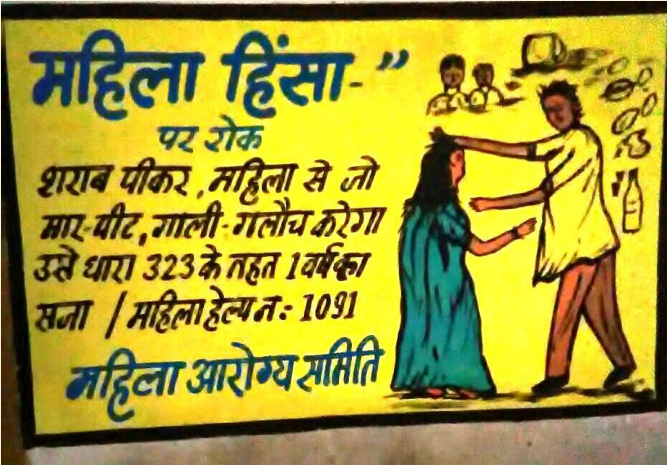 महिला हिंसा - ”
पर रोक
शराब पीकर, महिला से जो
मार-पीट, गाली-गलौच करेगा
उसे धारा 323 के तहत 1 वर्ष का
सजा / महिला हेल्प न: 1091
महिला आरोग्य समिति